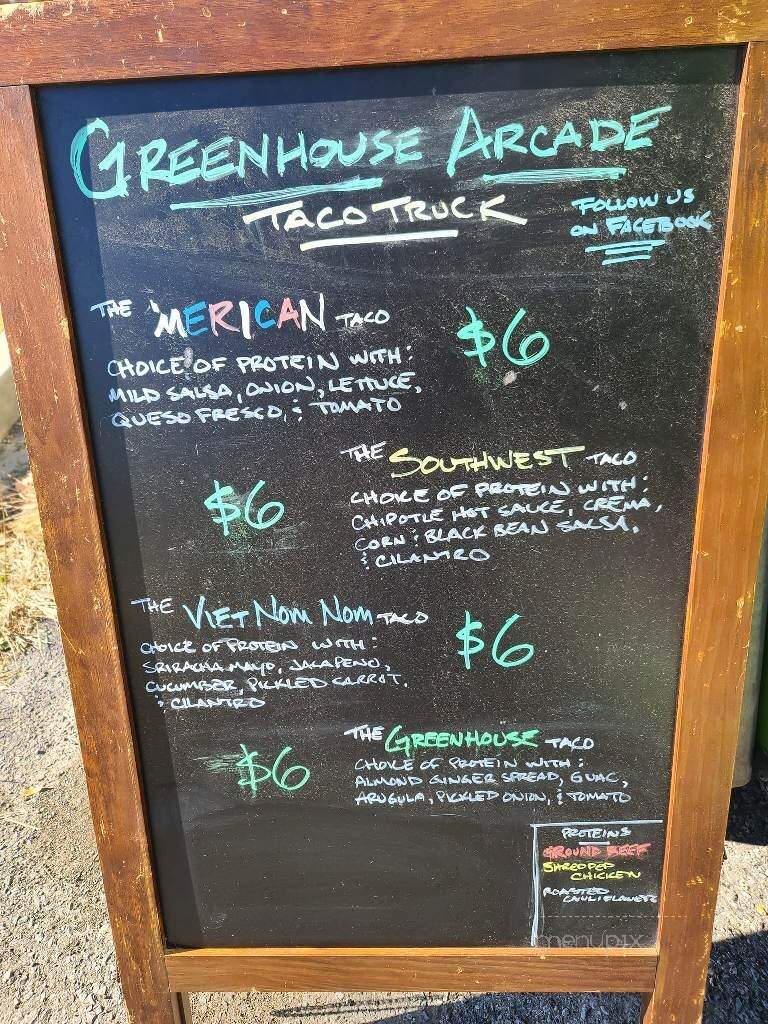 GREENHOUSE ARCADE
TACO TRUCK
FOLLOW US
ON FACEBOOK
THE 'MERICAN TACO
$6
CHOICE OF PROTEIN WITH:
MILD SALSA, ONION, LETTUCE,
QUESO FRESCO, & TOMATO
THE SOUTHWEST TACO
$6
CHOICE OF PROTEIN WITH:
CHIPOTLE HOT SAUCE, CREMA,
CORN & BLACK BEAN SALSA,
& CILANTRO
THE VIET NOM NOM TACO
$6
CHOICE OF PROTEIN WITH:
SRIRACHA MAYO, JALAPENO,
CUCUMBER, PICKLED CARROT,
& CILANTRO
THE GREENHOUSE TACO
$6
CHOICE OF PROTEIN WITH:
ALMOND GINGER SPREAD, GUAC,
ARUGULA, PICKLED ONION, & TOMATO
PROTEINS
GROUND BEEF
SHREDDED
CHICKEN
ROASTED
CAULIFLOWER
menupix